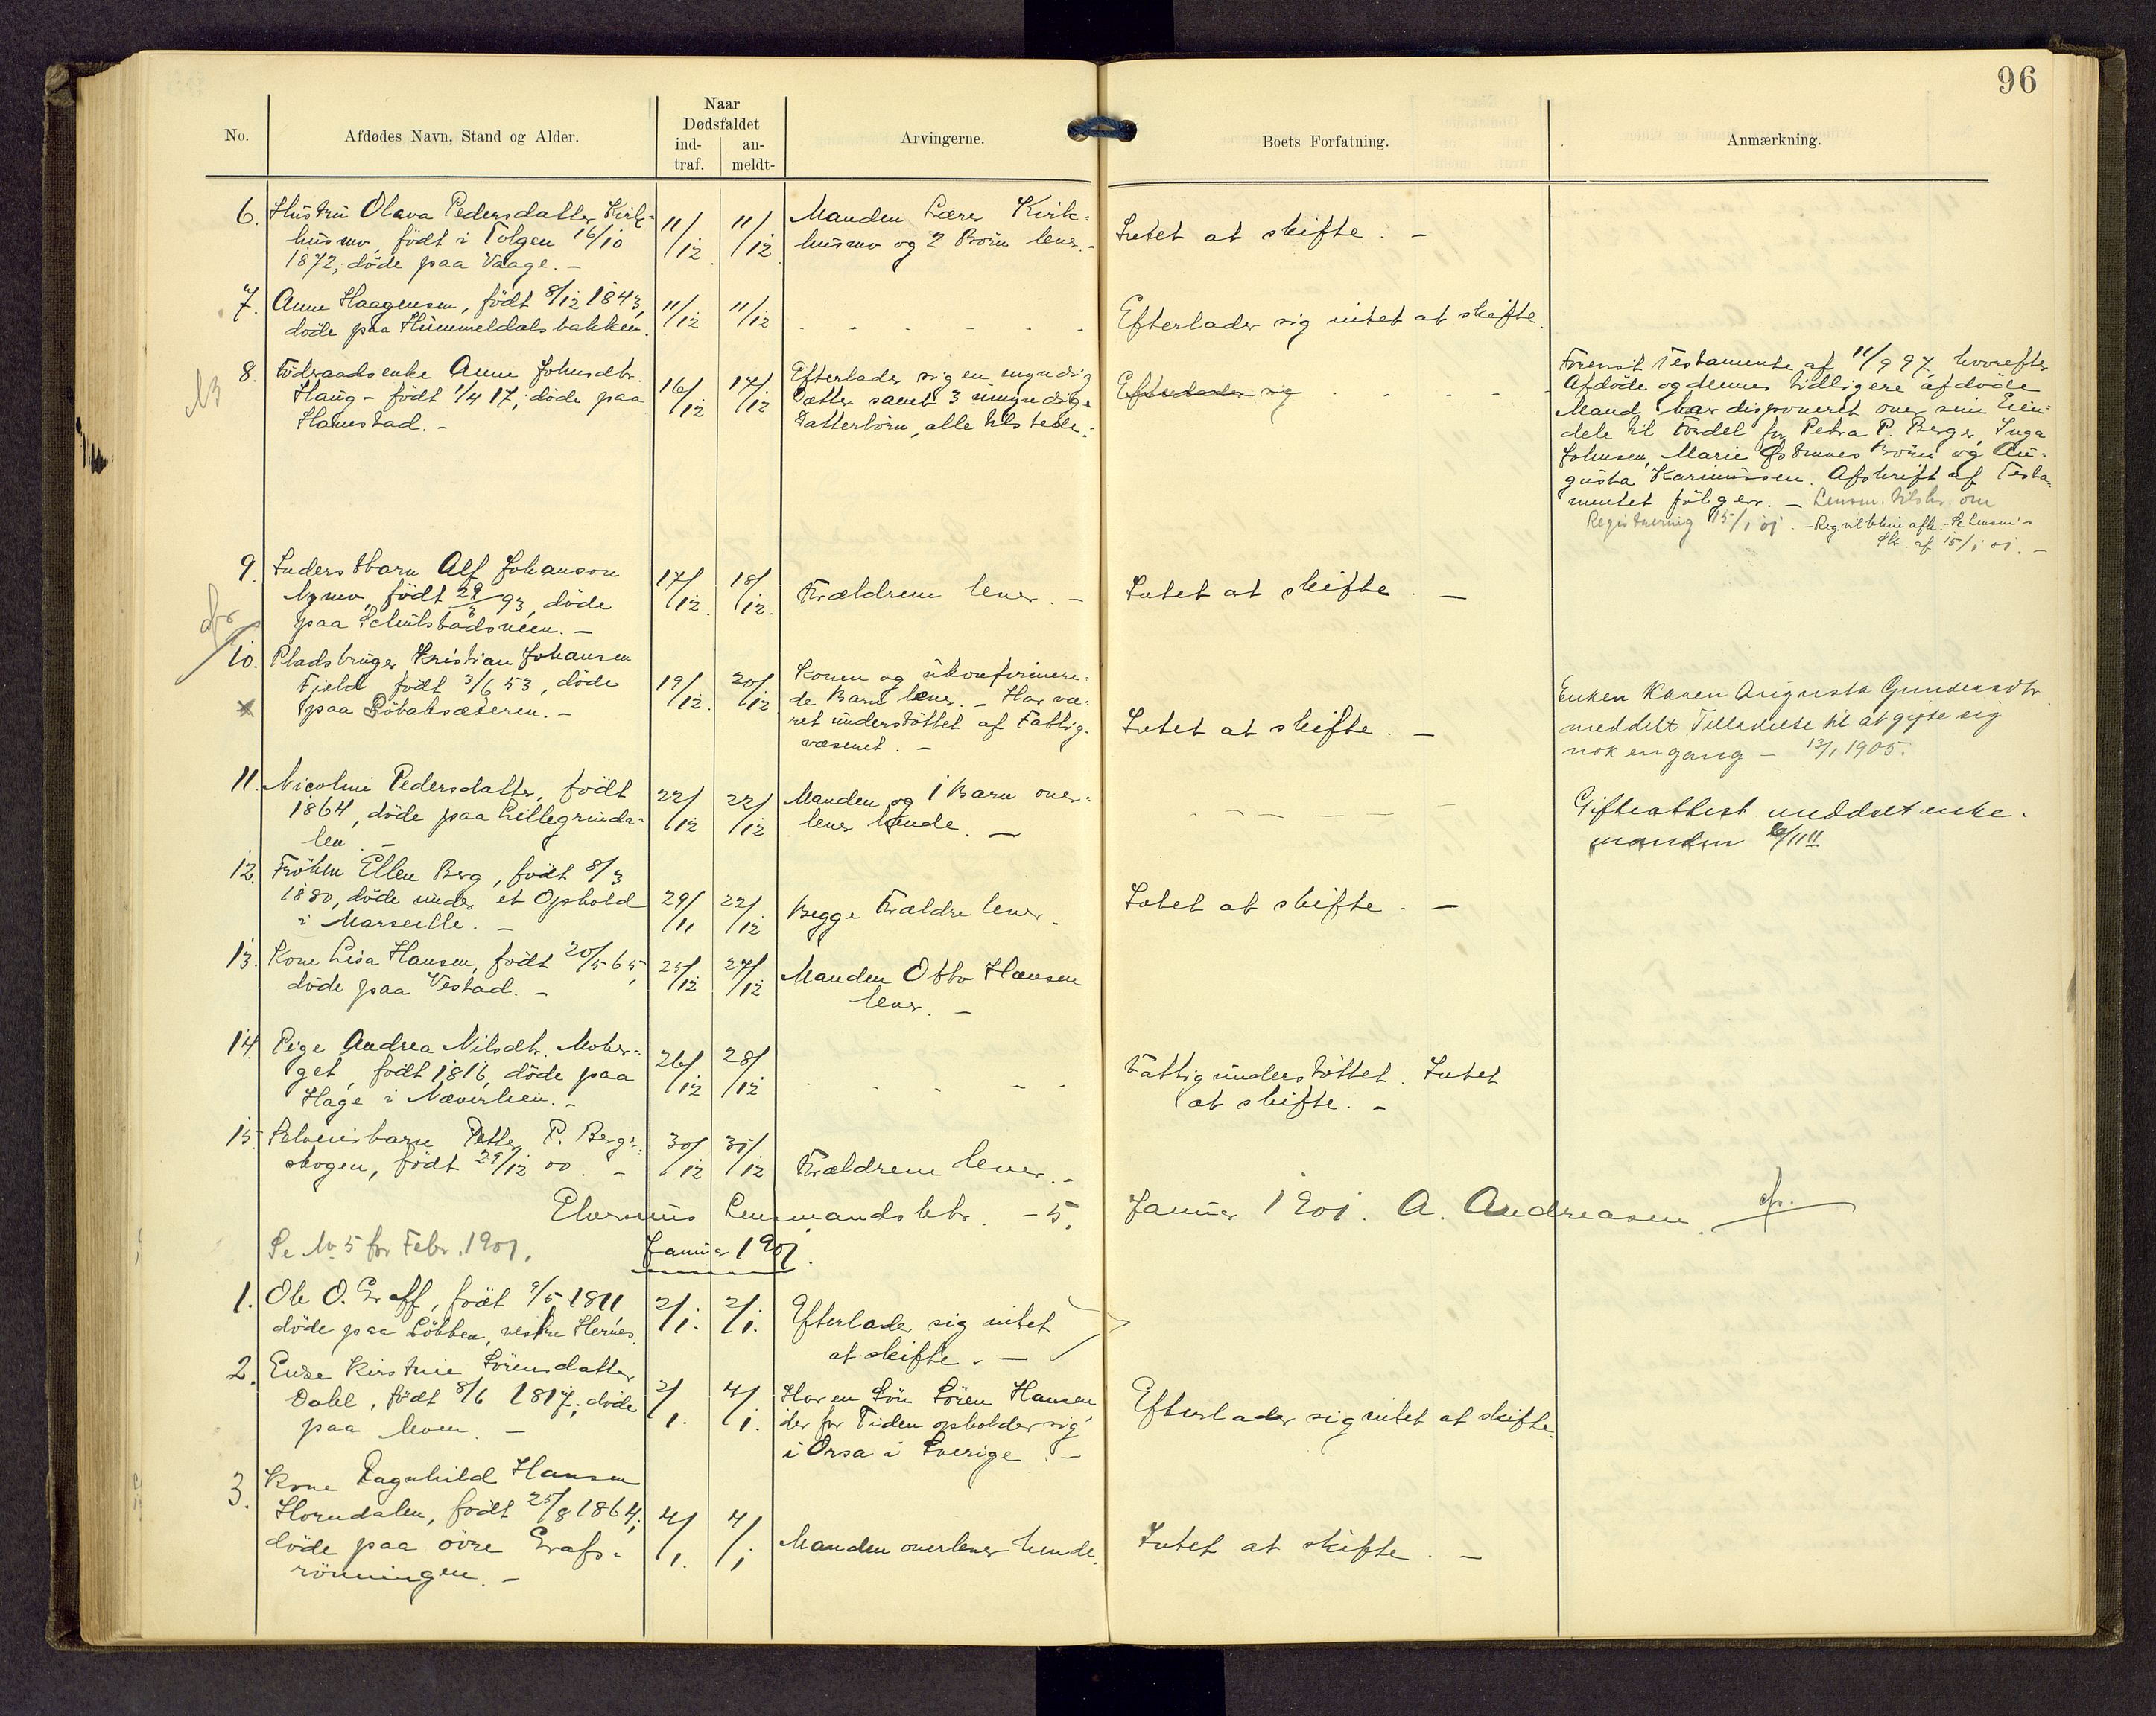 96
No.
Afdødes Navn, Stand og Alder.
Naar
Dødsfaldet
ind-
traf.
an-
meldt-
Arvingerne.
Boets Forfatning.
Anmærkning.
6. Hustru Olava Pedersdatter Kirk-
husmo, född i Tolgen 16/10
1872, döde paa Vaage. -
11/12
11/12
Manden Lærer Kirk-
husmo og 2 Börn lever. -
Intet at skifte. -
7. Anne Haagensen, født 8/12 1843,
döde paa Hummeldalsbakken.
11/12
11/12
Efterlader sig intet at skifte.
NB
8. Föderaadsenke Anne Johnsdtr.
Haug - født 1/4 17; döde paa
Hanestad. -
16/12
17/12
Efterlader sig en myndig
Datter samt 3 umyndige
Datterbörn, alle tilstede.
Efterlader sig
Forevist Testamente af 11/9 97, hvorefter
Afdöde og dennes tidligere afdöde
Mand har disponeret over sine Eien-
dele til Fordel for Petra P. Berger, Inga
Johnsen, Marie Östmoes Börn og Au-
gusta Karinussen. Afskrift af Testa-
mentet fölger. - Lensm. tilskr. om
Registrering 15/1 01. - Reg.
Skr. af 15/1 01. -
9. Inderstbarn Alf Johanson
Nymo, født 29/3 93, döde
paa
17/12.
18/12.
Forældrene lever. -
Intet at skifte. -
10. Pladsbruger Kristian Johansen
Fjeld, født 3/6 53, döde
paa
19/12.
20/12
Konen og ukonfirmere-
de Barn lever. - Har væ-
ret understöttet af Fattig-
væsenet. -
Intet at skifte. -
Enken Karen Augusta Gundersdtr
meddelt Tilladelse til at gifte sig
nok engang - 13/1 1905.
11. Nicoline Pedersdatter, født
1864, döde paa Lillegrinda-
len. -
22/12
22/12
Manden og 1 Barn over-
lever hende. -
Gifteattest meddelt enke-
manden
12. Fröken Ellen Berg, født 8/3
1880, döde under et Ophold
i Marseille. -
29/11
22/12
Begge Forældre lever.
Intet at skifte. -
13. Kone Lisa Hansen, født 20/5 65,
döde paa Vestad. -
25/12
27/12
Manden Otto Hansen
lever. -
14. Pige Andrea Nilsdtr. Mober-
get, født 1816, döde paa
Hage i Næverlien. -
26/12
28/12
Fattigunderstöttet. Intet
at skifte. -
15. Selveierbarn Petter P. Berg-
skogen, født 29/12 00. -
30/12
31/12
Forældrene lever. -
Elverums Lensmandsktr. - 5. Januar 1901. A. Andreasen.
Se No. 5 for Febr. 1901.
Januar 1901.
1. Ole O. Graff, født 9/5 1811
döde paa Löbben, vestre Hernes.
2/1.
2/1.
Efterlader sig intet
at skifte. -
2. Enke Kirstine Sörensdatter
Dahl, født 8/6 1817; döde
paa Moen. -
2/1.
4/1.
Har en Sön Sören Hansen,
der for Tiden opholder sig
i Orsa i Sverige. -
Efterlader sig intet at skifte.
3. Kone Ragnhild Hansen
Horndalen, født 25/8 1864;
döde paa övre Grafs-
rönningen. -
4/1.
4/1
Manden overlever hende.
Intet at skifte. -